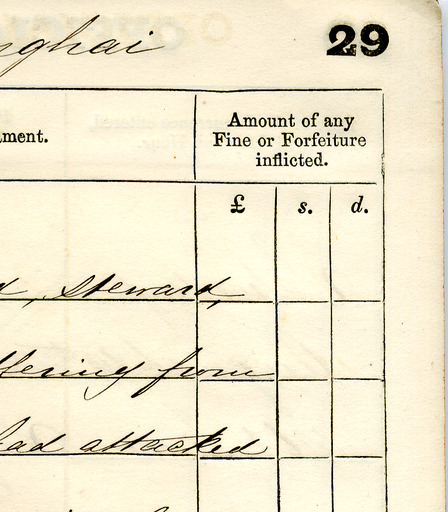 nghai 29
ment.
Amount of any
Fine or Forfeiture
inflicted.
£ s. d.
d, steward,
ffering from
had attacked